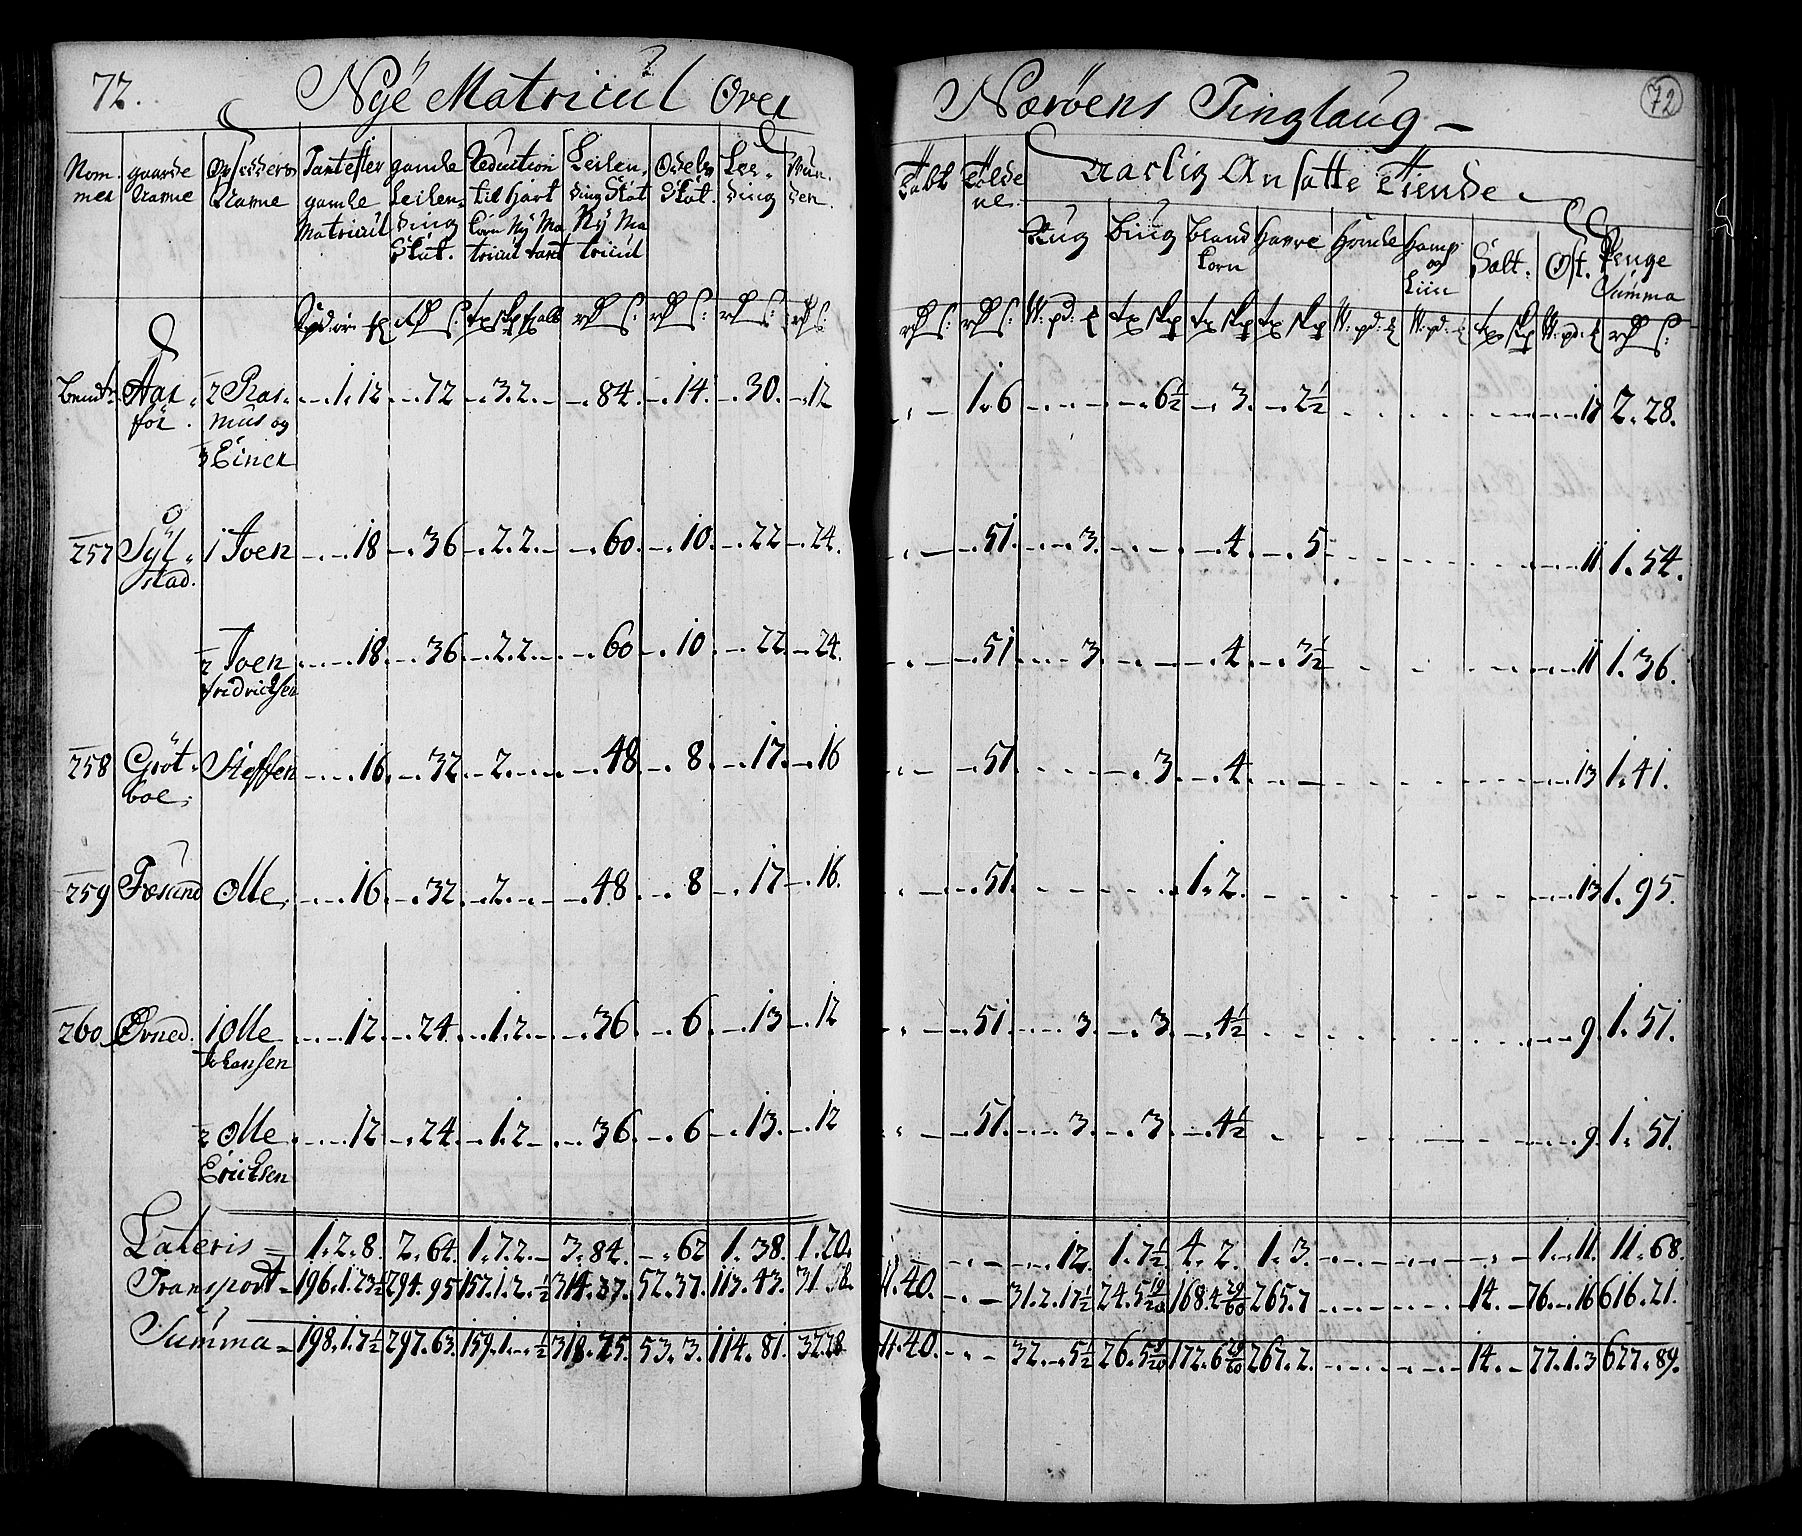 72. Nye Matricul Over Nærøens Tinglaug 72
Nom- mer gaarde Navne Opsidders Navne Taxt efter gamle Matricul gamle Leilen- ding Skat. Reduction til hart Corn Ny Ma tricul taxt Leilen- ding Skat Ny Ma tricul Odels Skat. Lee- ding
Told Aarlig Ansatte Tiende
Rug Biug bland korn Havre Homle Hamp og Liin Salt. Ost. Penge Summa
Aar- før. 2 Ras- mus og 3 Einer 1. 12 72 3. 2. 84. 14. 30. 12 1. 6 6½ 3. 2½ 17 2. 28.
257 Syl- stad. 1 Joen 18 36 2. 2. 60. 10. 22 24. 51. 3. 4 5 11 1. 54.
2 Joen fridrichsen 18. 36 2. 2. 60 10 22 24. 51 3 4 3½ 11 1. 36.
258 Grøt- boe. Steffen 16. 32 2. 48. 8. 17. 16 51 3. 4. 13 1. 41.
259 Føsund Olle. 16 32. 2. 48 8 17 16. 51. 1. 2. 13 1. 95.
260. Øvned. 1 Olle Johansen 12 24. 1. 2 36. 6. 13 12 51 3. 3. 4½ 9. 1. 51.
2 Olle Ericksen 12 24. 1. 2 36 6 13. 12 51. 3. 3 4½ 9. 1. 51.
Lateris 1. 2. 8. 2. 64. 1. 7. 2. 3. 84. 62 1. 38. 1. 20. 12. 1. 7½ 4. 2. 1. 3. 1. 11. 11. 68.
Transport 196. 1. 23½ 294. 95 157. 1. 2. ½ 314. 37. 52. 37. 113. 43. 31. 11. 40. 31. 2. 17½ 24. 5 168. 4 265. 7 14. 76. 16 616. 21.
Summa 198. 1. 7½ 297. 63. 159. 1. ½ 318. 25. 53. 3. 114. 81. 32. 28 11. 40. 32. 5½ 26. 5 172. 6 267. 2. 14. 77. 1. 3 627. 89.